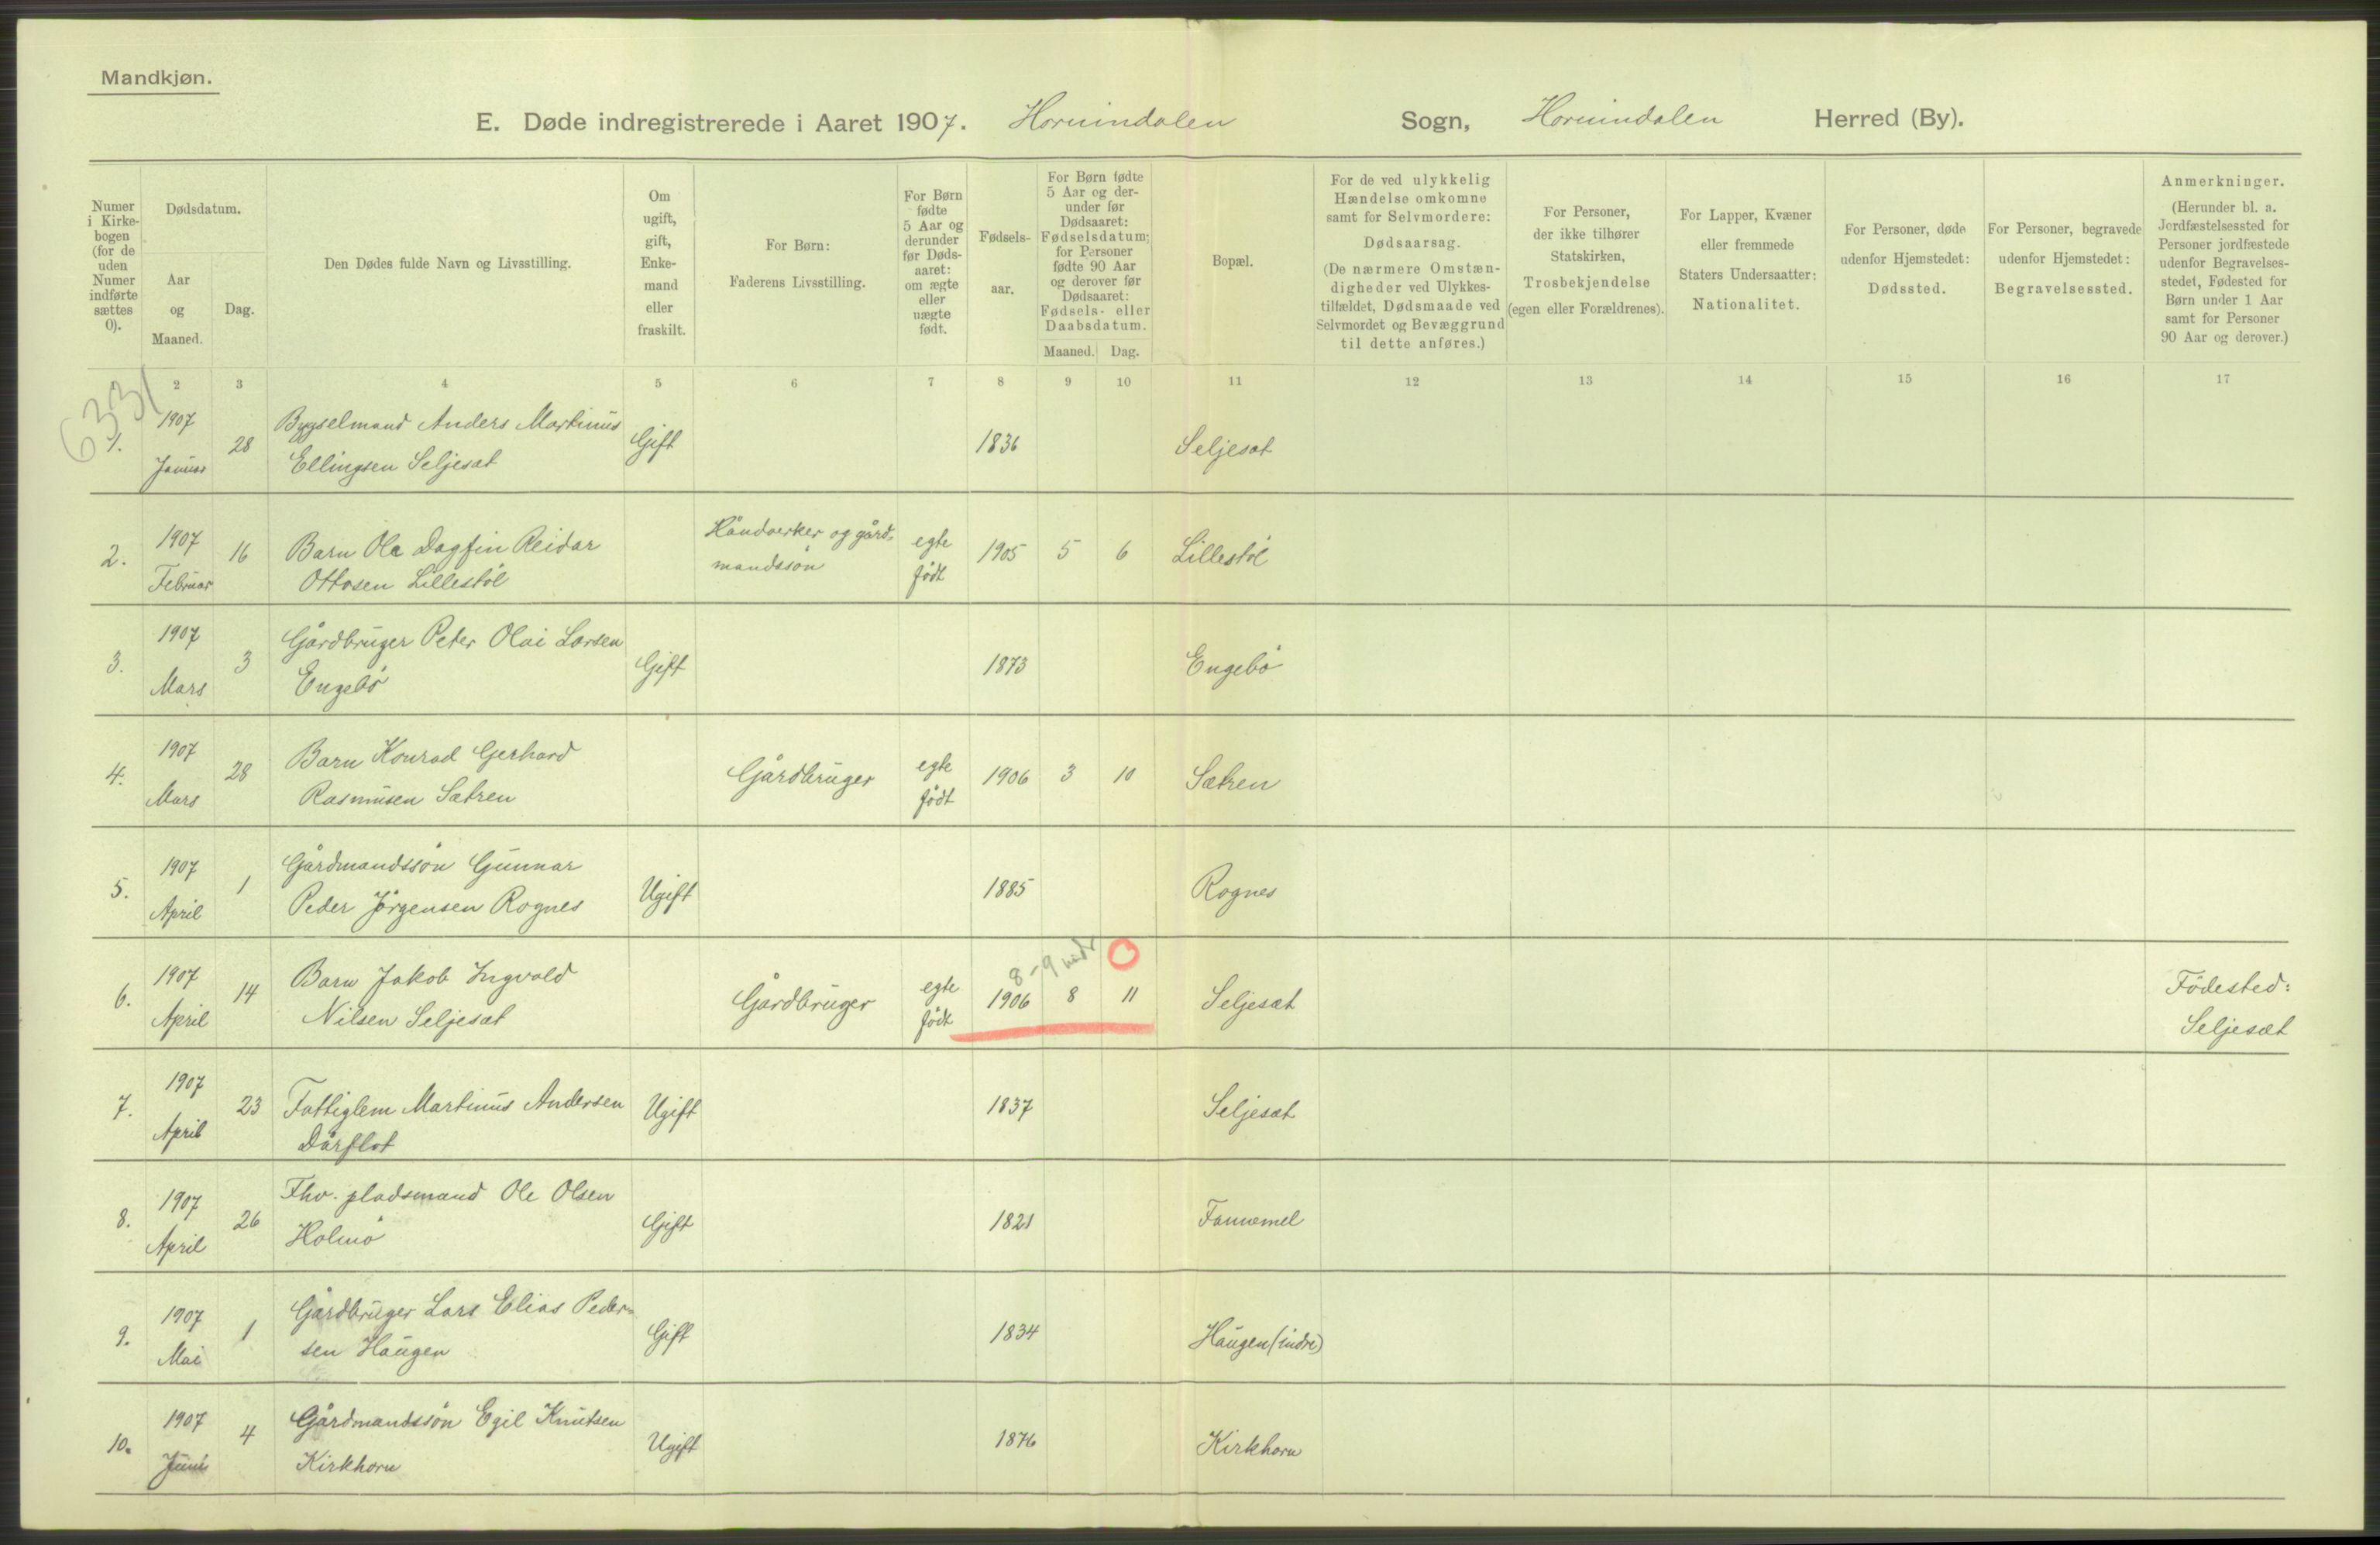 Mandkjøn.
E. Døde indregistrerede i Aaret 1907. Hornindalen Sogn, Hornindalen Herred (By).
Numer i Kirkebogen (for de uden Numer indførte sættes 0).
Dødsdatum.
Aar og Maaned.
Dag.
Den Dødes fulde Navn og Livsstilling.
Om ugift, gift, Enkemand eller fraskilt.
For Børn: Faderens Livsstilling.
For Børn fødte 5 Aar og derunder før Dødsaaret: om ægte eller uægte født.
Fødselsaar.
For Børn fødte 5 Aar og derunder før Dødsaaret: Fødselsdatum; for Personer fødte 90 Aar og derover før Dødsaaret: Fødsels- eller Daabsdatum.
Maaned. Dag.
Bopæl.
For de ved ulykkelig Hændelse omkomne samt for Selvmordere: Dødsaarsag. (De nærmere Omstændigheder ved Ulykkestilfældet, Dødsmaade ved Selvmordet og Bevæggrund til dette anføres.)
For Personer, der ikke tilhører Statskirken, Trosbekjendelse (egen eller Forældrenes).
For Lapper, Kvæner eller fremmede Staters Undersaatter: Nationalitet.
For Personer, døde udenfor Hjemstedet: Dødssted.
For Personer, begravede udenfor Hjemstedet: Begravelsessted.
Anmerkninger. (Herunder bl. a. Jordfæstelsessted for Personer jordfæstede udenfor Begravelsesstedet, Fødested for Børn under 1 Aar samt for Personer 90 Aar og derover.)
2 3 4 5 6 7 8 9 10 11 12 13 14 15 16 17
6331
1. 1907 Januar 28 Bygselmand Anders Martinus Ellingsen Seljesæt Gift 1836 Seljesæt
2. 1907 Februar 16 Barn Ola Dagfin Reidar Ottosen Lillestöl Håndverker og gårdmandssön egte födt 1905 5 6 Lillestöl
3. 1907 Mars 3 Gårdbruger Peter Olai Larsen Engebö Gift 1873 Engebö
4. 1907 Mars 28 Barn Konrad Gerhard Rasmusen Sætren Gårdbruger egte födt 1906 3 10 Sætren
5. 1907 April 1 Gårdmandssön Gunnar Peder Jörgensen Rognes Ugift 1885 Rognes
6. 1907 April 14 Barn Jakob Ingvald Nilsen Seljesæt Gårdbruger egte födt 8-9 mdr 1906 8 11 Seljesæt Födested: Seljesæt
7. 1907 April 23 Fattiglem Martinus Andersen Dårflot Ugift 1837 Seljesæt
8. 1907 April 26 Fhv. pladsmand Ole Olsen Holmö Gift 1821 Fannemel
9. 1907 Mai 1 Gårdbruger Lars Elias Pedersen Haugen Gift 1834 Haugen (indre)
10. 1907 Juni 4 Gårdmandssön Egil Knutsen Kirkhorn Ugift 1876 Kirkhorn